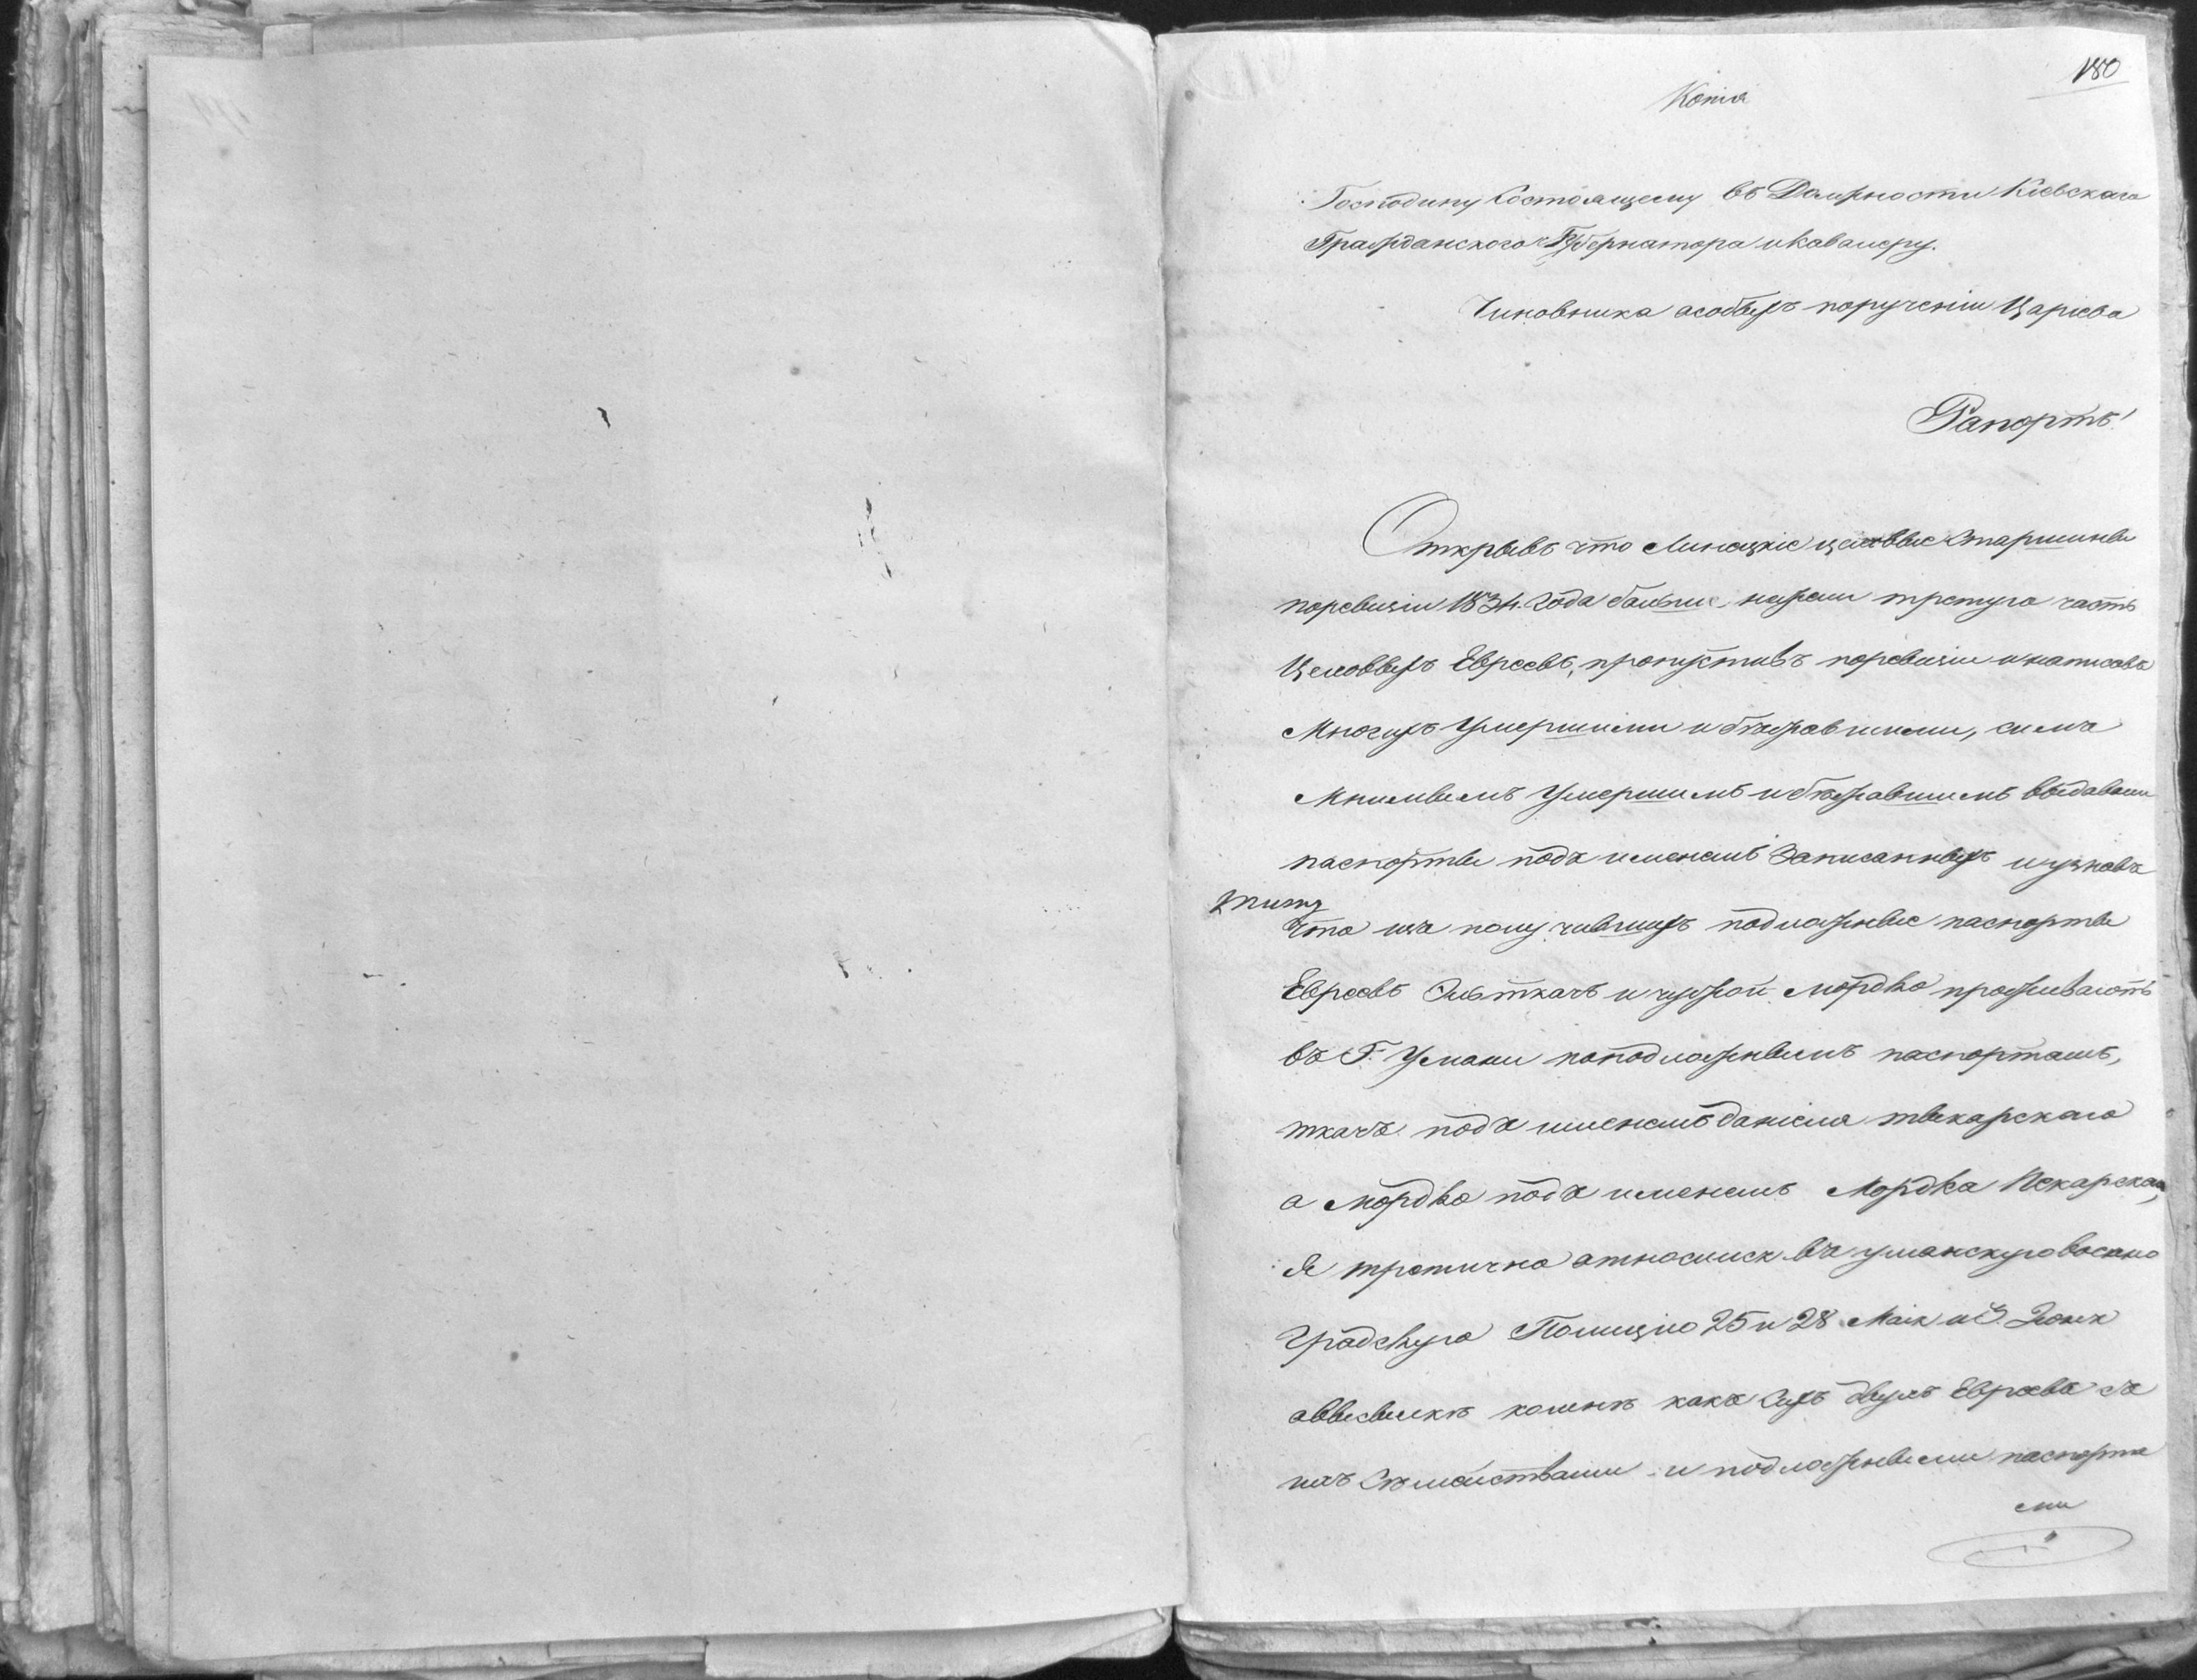 180
Копія
Господину Состоящему въ Должности Кіевскаго
Гражданскаго Губернатора и Кавалеру.
Чиновника особыхъ порученіи
Рапортъ!
Открывъ что цеховые Старшины
поревизіи 1834. года больше нежели третую часть
Цеховыхъ Евреевъ, пропустивъ поревизіи и написавъ
Многихъ Умершими и бѣжавшими, симъ
Мнимымъ Умершимъ и бѣжавшимъ выдавали
паспорты подъ именемъ Записанныхъ и узнавъ
что изъ получившихъ подложные паспорты
Евреевъ ткачъ и Мордко проживаютъ
въ Г. Умани поподложнымъ паспортамъ,
ткачъ подъ именемъ Даніеля
а Мордко подъ именемъ Мордка Пекарскаго,
Я третично относился въ уманскую военно
Градскую Полицію 25 и 28 Маія и 3 Іюня
о высылкѣ ко мнѣ какъ Сихъ двухъ Евреевъ съ
ихъ Семействами и подложными паспорта
ми